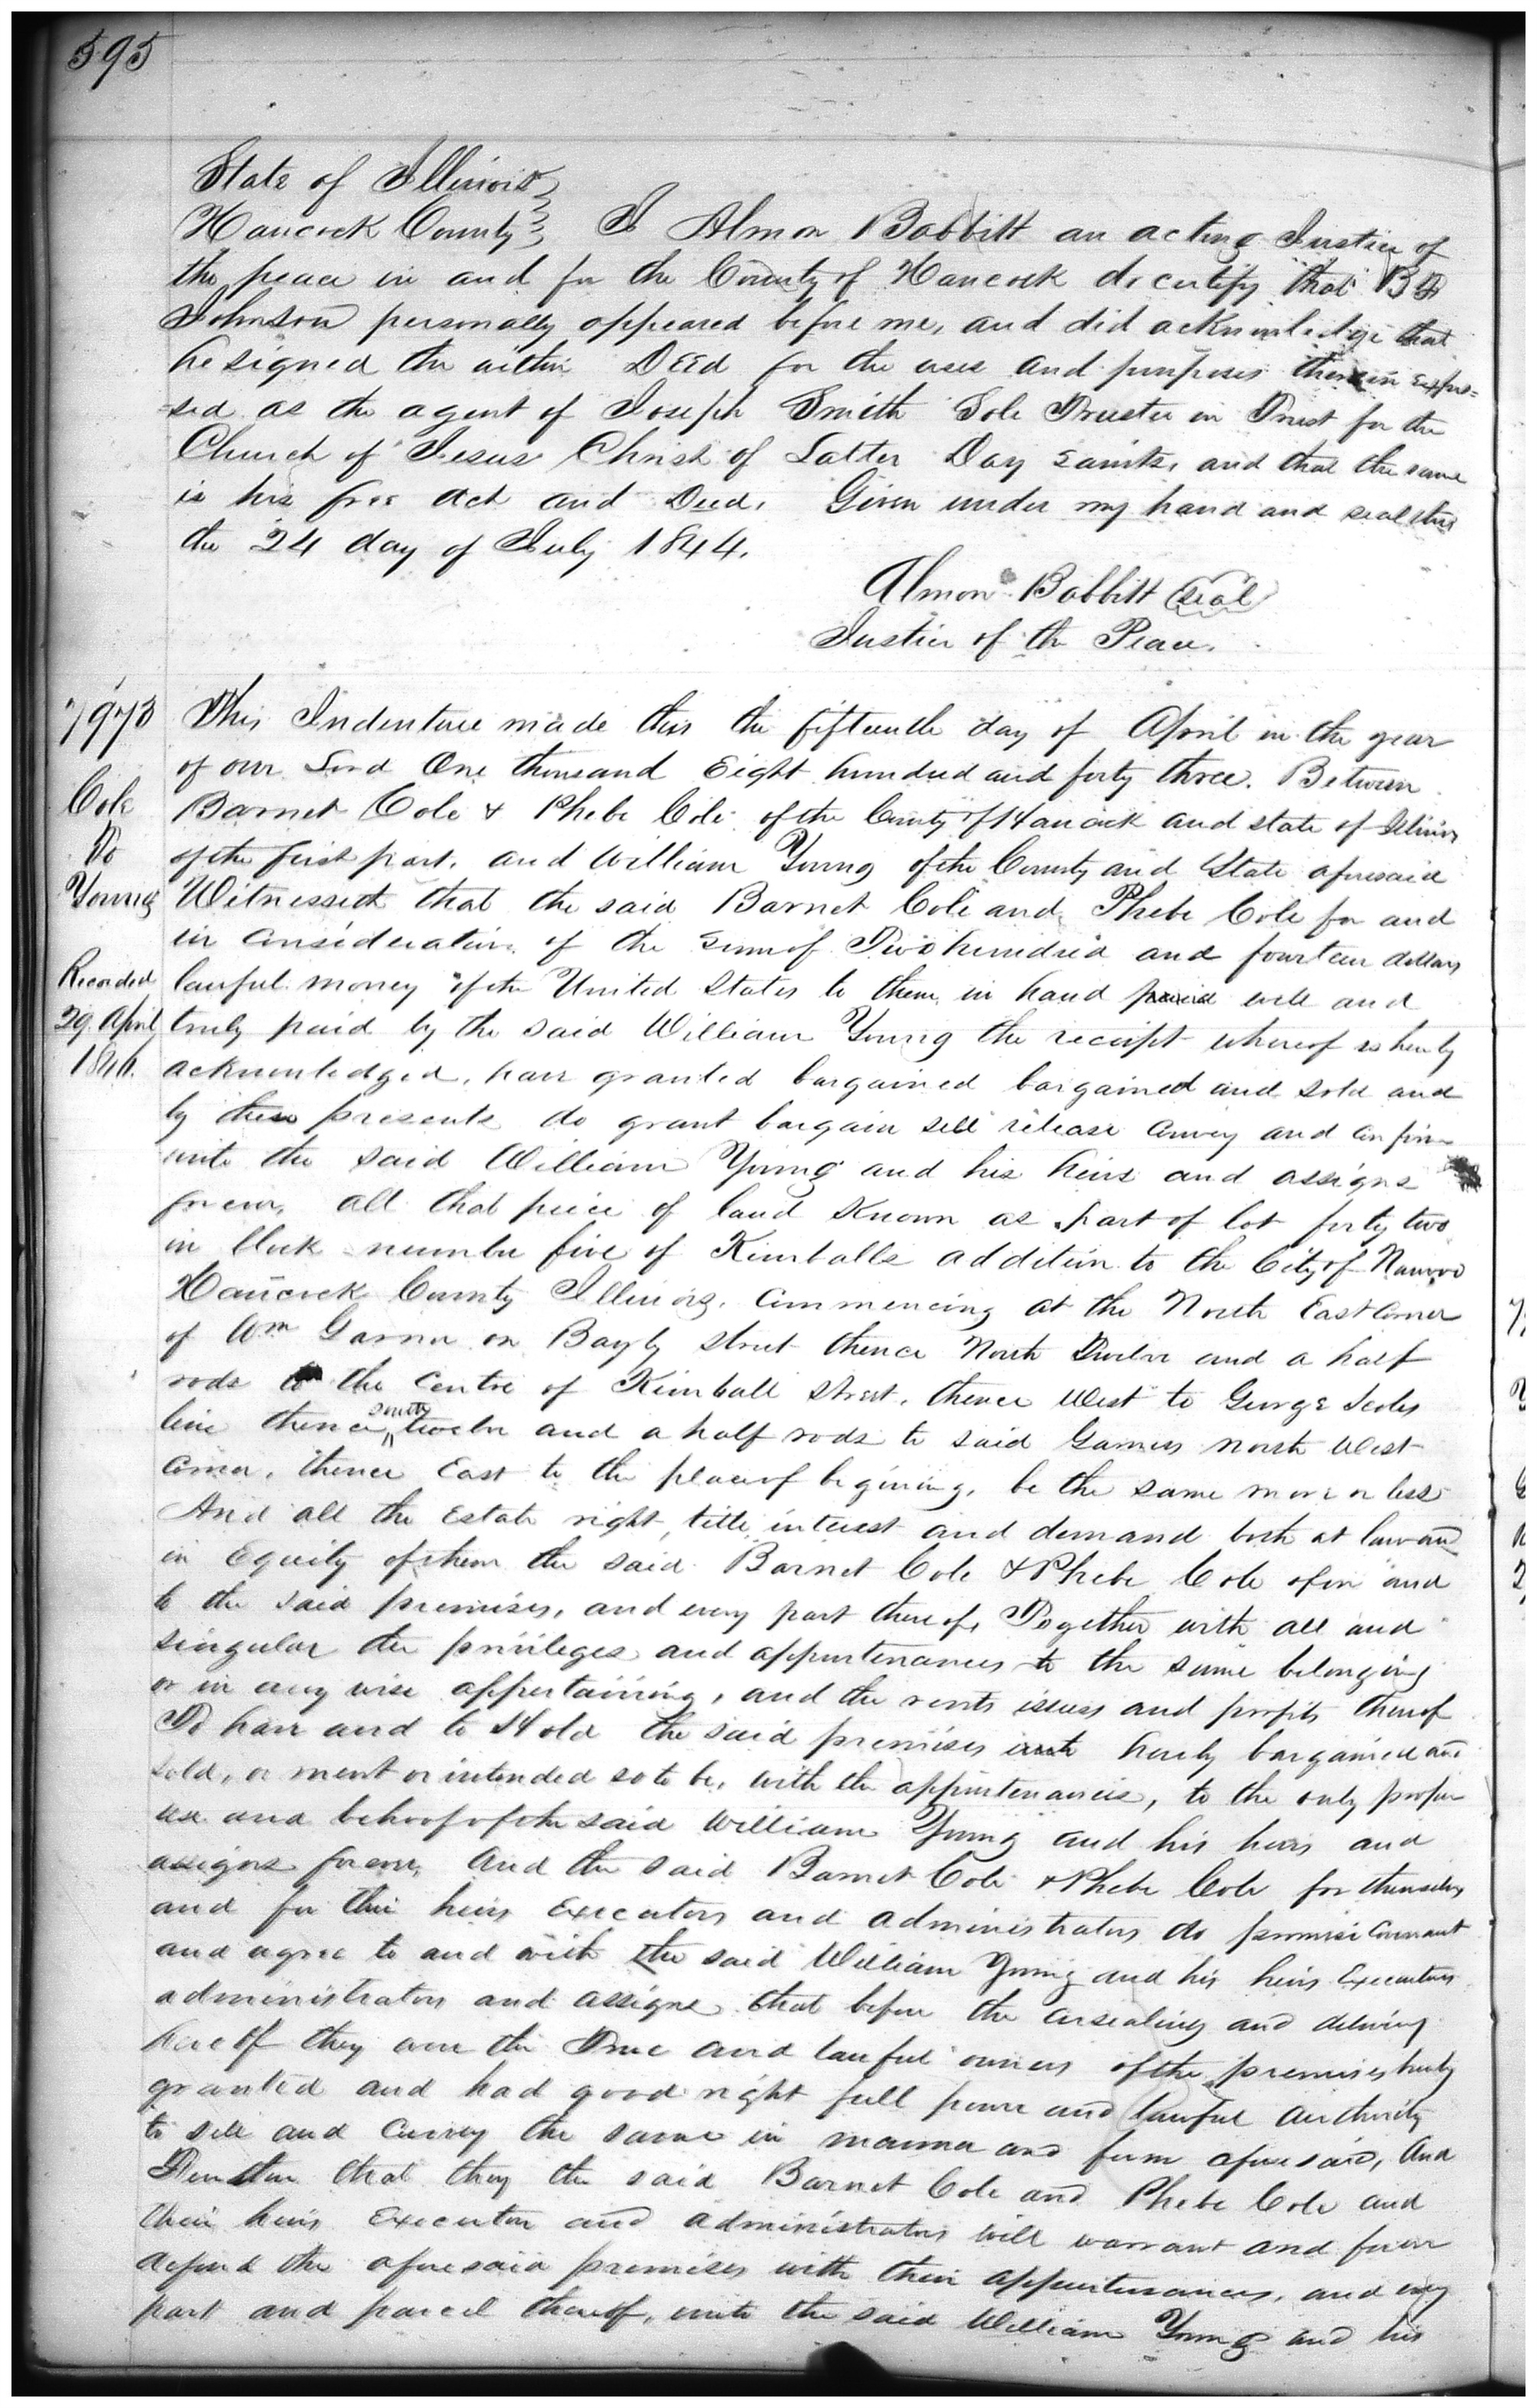 595
State of Illinois
Hancock County I Almon Babbitt an acting Justice of
the peace in and for the County of Hancock do certify that B F
Johnson personally appeared before me, and did acknowledge that
he signed the within DEEd for the uses and purposes therein expres=
=sed as the agent of Joseph Smith Sole Trustee in Trust for the
Church of Jesus Christ of Latter Day Saints, and that the same
is his free Act and Deed. Given under my hand and seal this
the 24 day of July 1844.
Almon Babbitt (seal)
Justice of the Peace.
7973
Cole
To
Young
Recorded
29 April
184
This Indenture made this the fifteenth day of April in the year
of our Lord One thousand Eight hundred and forty three. Between
Barnet Cole & Phebe Cole of the County of Hancock and state of Illinois
of the first part, and William Young of the County and State aforesaid
Witnesseth that the said Barnet Cole and Phebe Cole for and
in consideration of the sum of Two hundred and fourteen dollars
lawful money of the United States to them in hand paid well and
truly paid by the said William Young the receipt whereof is hereby
acknowledged, have granted bargained bargained and sold and
by these presents do grant bargain sell release convey and confirm
unto the said William Young and his heirs and assigns
forever, all that piece of land Known as part of lot forty two
in block number five of Kimballs addition to the City of Nauvoo
Hancock County Illinois. Commencing at the North East corner
of Wm Garner on Bagby street thence North Twelve and a half
rods to the Centre of Kimball street, thence West to George
line thence south twelve and a half rods to said Garners north West
corner, thence East to the place of begining, be the same more or less
And all the Estate right, title interest and demand both at law and
in Equity of them the said Barnet Cole & Phebe Cole of in and
to the said premises, and every part thereof, Together with all and
singular the privileges and appurtenances to the same belonging
or in any wise appertaining, and the rents issues and profits thereof
To have and to Hold the said premises hereby bargained and
sold, or ment or intended so to be, with the appurtenances, to the only proper
use and behoof of the said William Young and his heirs and
assigns forever, And the said Barnet Cole & Phebe Cole for themselves
and for their heirs Executors and administrators do promise Covenant
and agree to and with the said William Young and his heirs Executors
administrators and assigns that before the ensealing and delivery
hereof they were the True and lawful owners of the premises hereby
granted and had good right full power and lawful authority
to sell and Convey the same in manner and form aforesaid, And
that they the said Barnet Cole and Phebe Cole and
their heirs Executors and administrators will warrant and forever
defend the aforesaid premises with their appurtenances, and every
part and parcel thereof, unto the said William Young and his